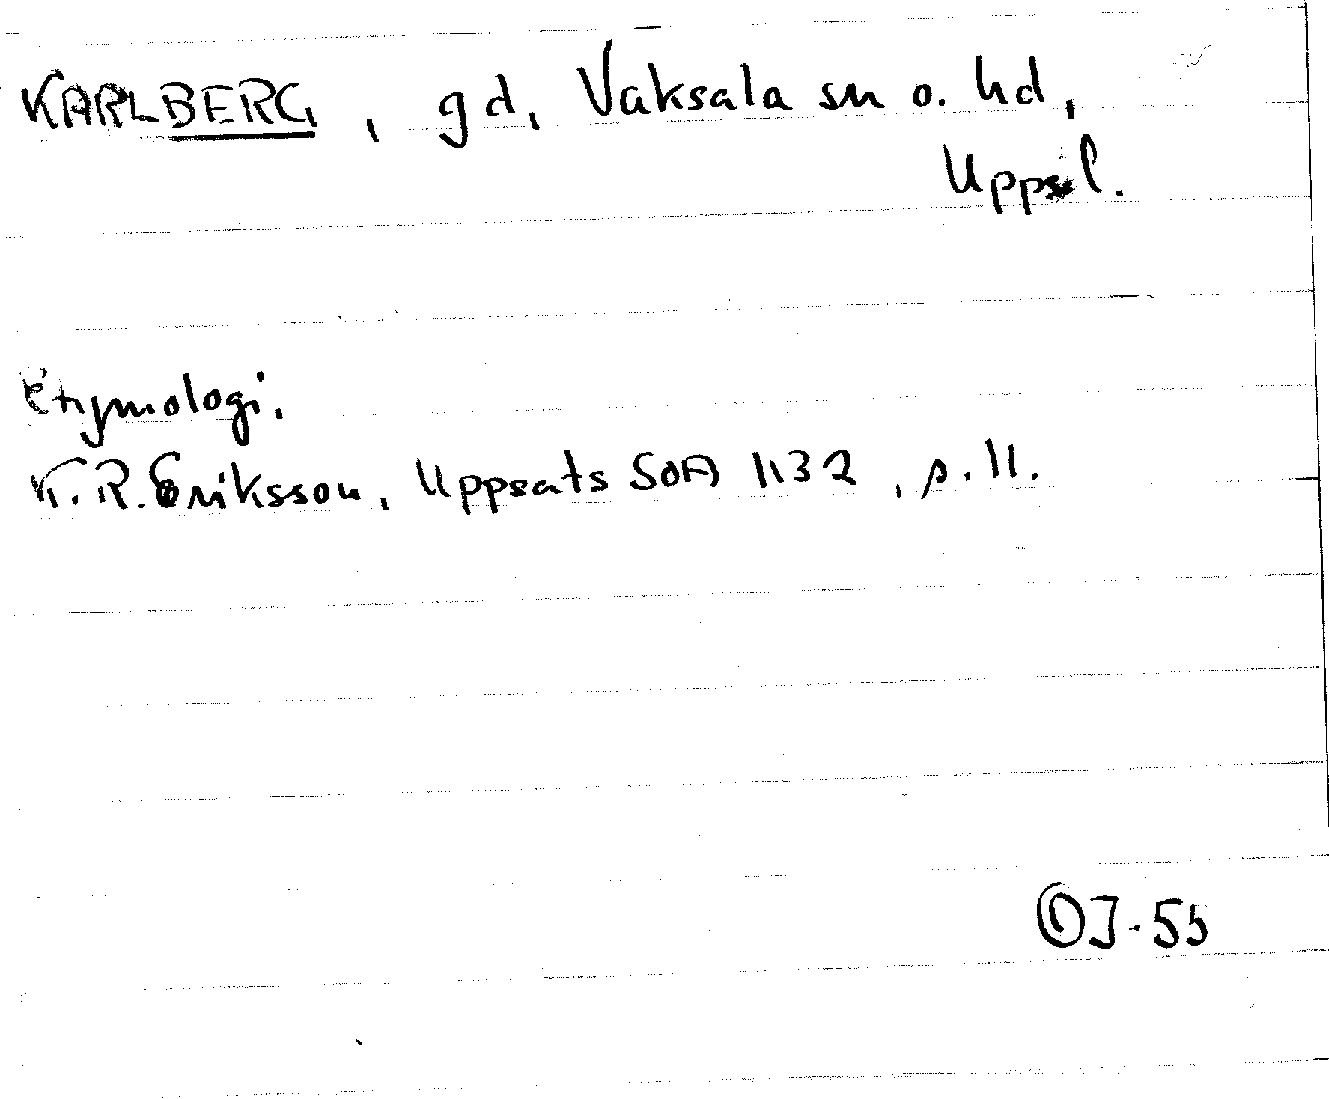 KARLBERG, gd, Vaksala sn o. hd,
Upps.l.
Etymologi.
K.R. Eriksson, Uppsats SOA 1132, s. 11.
OJ-55